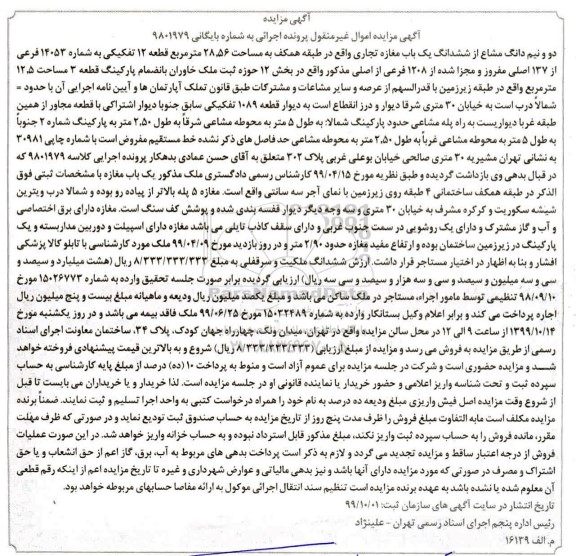 آگهی مزایده
آگهی مزایده اموال غیرمنقول پرونده اجرائی به شماره بایگانی ۹۸۰۱۹۷۹
دو و نیم دانگ مشاع از ششدانگ یک باب مغازه تجاری واقع در طبقه همکف به مساحت ۲۸,۵۶ مترمربع قطعه ۱۲ تفکیکی به شماره ۱۴۰۵۳ فرعی
از ۱۳۷ اصلی مفروز و مجزا شده از ۱۲۰۸ فرعی از اصلی مذکور واقع در بخش ۱۲ حوزه ثبت ملک خاوران بانضمام پارکینگ قطعه ۳ مساحت ۱۲,۵
مترمربع واقع در طبقه زیرزمین با قدرالسهم از عرصه و سایر مشاعات و مشترکات طبق قانون تملک آپارتمان ها و آیین نامه اجرایی آن با حدود =
شمالاً درب است به خیابان ۳۰ متری شرقا دیوار و درز انقطاع است به دیوار قطعه ۱۰۸۹ تفکیکی سابق جنوبا دیوار اشتراکی با قطعه مجاور از همین
طبقه غربا دیواریست به راه پله مشاعی حدود پارکینگ شمالا: به طول ۵ متر به محوطه مشاعی شرقاً به طول ۲,۵۰ متر به پارکینگ شماره ۲ جنوباً
به طول ۵ متر به محوطه مشاعی غرباً به طول ۲,۵۰ متر به محوطه مشاعی حدفاصل های ذکر نشده خط مستقیم مفروض است با شماره چاپی ۳۰۹۸۱
به نشانی تهران مشیریه ۳۰ متری صالحی خیابان بوعلی غربی پلاک ۳۰۲ متعلق به آقای حسن عمادی بدهکار پرونده اجرایی کلاسه ۹۸۰۱۹۷۹ که
در قبال بدهی وی بازداشت گردیده و طبق نظریه مورخ ۹۹/۰۴/۱۵ کارشناس رسمی دادگستری ملک مذکور یک باب مغازه با مشخصات ثبتی فوق
الذکر در طبقه همکف ساختمانی ۴ طبقه روی زیرزمین با نمای آجر سه سانتی واقع است. مغازه ۵ پله بالاتر از پیاده رو بوده و شمالا درب ویترین
شیشه سکوریت و کرکره مشرف به خیابان ۳۰ متری و سه وجه دیگر دیوار قفسه بندی شده و پوشش کف سنگ است. مغازه دارای برق اختصاصی
و آب و گاز مشترک و دارای یک روشویی در سمت جنوب غربی و دارای سقف کاذب تایلی می باشد مغازه دارای اسپیلت و دوربین مداربسته و یک
پارکینگ در زیرزمین ساختمان بوده و ارتفاع مفید مغازه حدود ۲/۹۰ متر و در روز بازدید مورخ ۹۹/۰۴/۰۹ ملک مورد کارشناسی با تابلو کالا پزشکی
افشار و بنا به اظهار در اختیار مستاجر قرار داشت. ارزش ششدانگ ملکیت و سرقفلی به مبلغ ۸/۳۳۳/۳۳۳/۳۳۳ ریال (هشت میلیارد و سیصد و
سی و سه میلیون و سیصد و سی و سه هزار و سیصد و سی سه ریال) ارزیابی گردیده برابر صورت جلسه تحقیق وارده به شماره ۱۵۰۲۶۷۷۳ مورخ
۹۸/۰۹/۱۰ تنظیمی توسط مامور اجراء، مستاجر در ملک ساکن می باشد و مبلغ یکصد میلیون ریال ودیعه و ماهیانه مبلغ بیست و پنج میلیون ریال
اجاره پرداخت می کند و برابر اعلام وکیل بستانکار وارده به شماره ۱۵۰۳۲۴۸۹ مورخ ۹۹/۰۶/۲۵ ملک فاقد بیمه می باشد و در روز یکشنبه مورخ
۱۳۹۹/۱۰/۱۴ از ساعت ۹ الی ۱۲ در محل سالن مزایده واقع در تهران، میدان ونک، چهارراه جهان کودک، پلاک ۳۴، ساختمان معاونت اجرای اسناد
رسمی از طریق مزایده به فروش می رسد و مزایده از مبلغ ارزیابی (۸/۳۳۳/۳۳۳/۳۳۳ ریال) شروع و به بالاترین قیمت پیشنهادی فروخته خواهد
شد و مزایده حضوری است و شرکت در جلسه مزایده برای عموم آزاد است و منوط به پرداخت ۱۰ (ده) درصد از مبلغ پایه کارشناسی به حساب
سپرده ثبت و تحت شناسه واریز اعلامی و حضور خریدار یا نماینده قانونی او در جلسه مزایده است. لذا خریدار و یا خریداران می بایست تا قبل
از شروع وقت مزایده اصل فیش واریزی مبلغ ودیعه ده درصد به نام خود را همراه درخواست کتبی به واحد اجرا تسلیم و ثبت نمایند. ضمناً برنده
مزایده مکلف است مابه التفاوت مبلغ فروش را ظرف مدت پنج روز از تاریخ مزایده به حساب صندوق ثبت تودیع نماید و در صورتی که ظرف مهلت
مقرر، مانده فروش را به حساب سپرده ثبت واریز نکند، مبلغ مذکور قابل استرداد نبوده و به حساب خزانه واریز خواهد شد. در این صورت عملیات
فروش از درجه اعتبار ساقط و مزایده تجدید می گردد و لازم به ذکر است پرداخت بدهی های مربوط به آب، برق، گاز اعم از حق انشعاب و یا حق
اشتراک و مصرف در صورتی که مورد مزایده دارای آنها باشد و نیز بدهی مالیاتی و عوارض شهرداری و غیره تا تاریخ مزایده اعم از اینکه رقم قطعی
آن معلوم شده یا نشده باشد به عهده برنده مزایده است تنظیم سند انتقال اجرائی موکول به ارائه مفاصا حسابهای مربوطه خواهد بود.
تاریخ انتشار در سایت آگهی های سازمان ثبت: ۹۹/۱۰/۰۱
رئیس اداره پنجم اجرای اسناد رسمی تهران - علینژاد
م. الف ۱۶۱۳۹